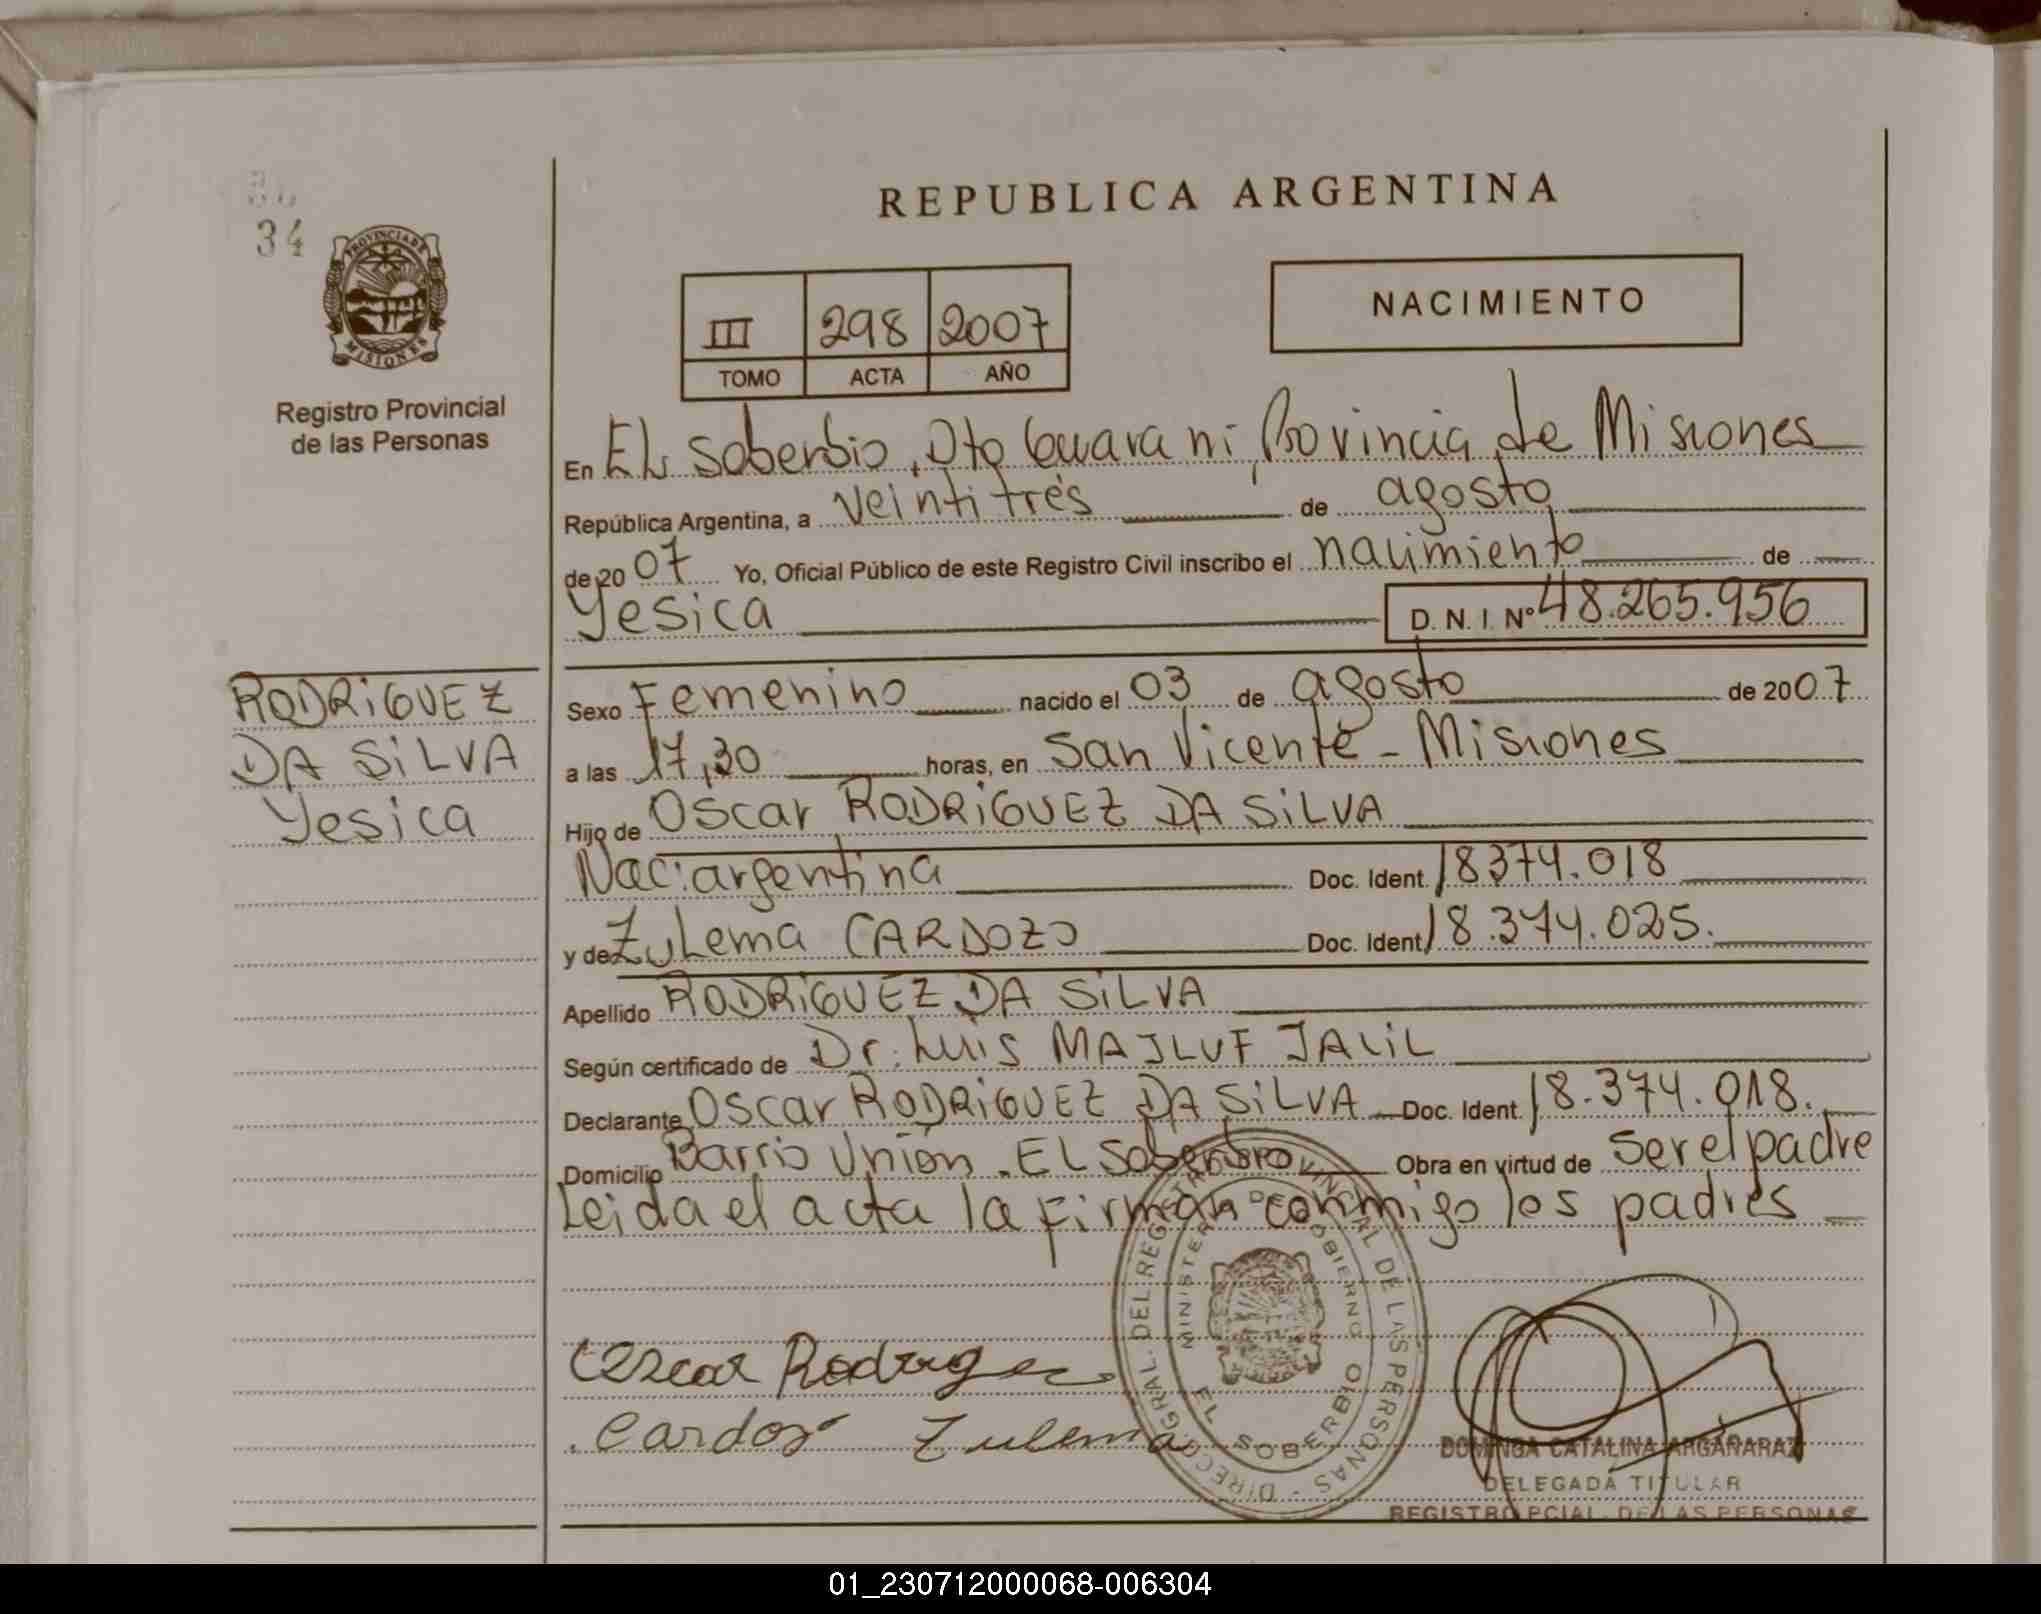 REPUBLICA ARGENTINA
34
PROVINCIA DE
MISIONES
Registro Provincial
de las Personas
III 298 2007
TOMO ACTA AÑO
NACIMIENTO
En El Soberbio, Dto Guarani, Provincia de Misiones
República Argentina, a veintitrés de agosto
de 20 07 Yo, Oficial Público de este Registro Civil inscribo el nacimiento de
Yesica D. N. I. Nº 48.265.956
RODRIGUEZ
DA SILVA
Yesica
Sexo Femenino nacido el 03 de agosto de 20 07
a las 17,30 horas, en San Vicente - Misiones
Hijo de Oscar RODRIGUEZ DA SILVA
Nac: argentina Doc. Ident. 18374.018
y de Zulema CARDOZO Doc. Ident. 18.374.025.
Apellido RODRIGUEZ DA SILVA
Según certificado de Dr. Luis MAJLUF JALIL
Declarante Oscar RODRIGUEZ DA SILVA Doc. Ident. 18.374.018.
Domicilio Barrio Unión. El Soberbio Obra en virtud de ser el padre
Leida el acta la firman conmigo los padres
DIREC. GRAL. DEL REGISTRO PROVINCIAL DE LAS PERSONAS -
MINISTERIO DE GOBIERNO
EL SOBERBIO
Cardozo Zulema
DOMINGA CATALINA ARGAÑARAZ
DELEGADA TITULAR
REGISTRO PCIAL. DE LAS PERSONAS
01_230712000068-006304